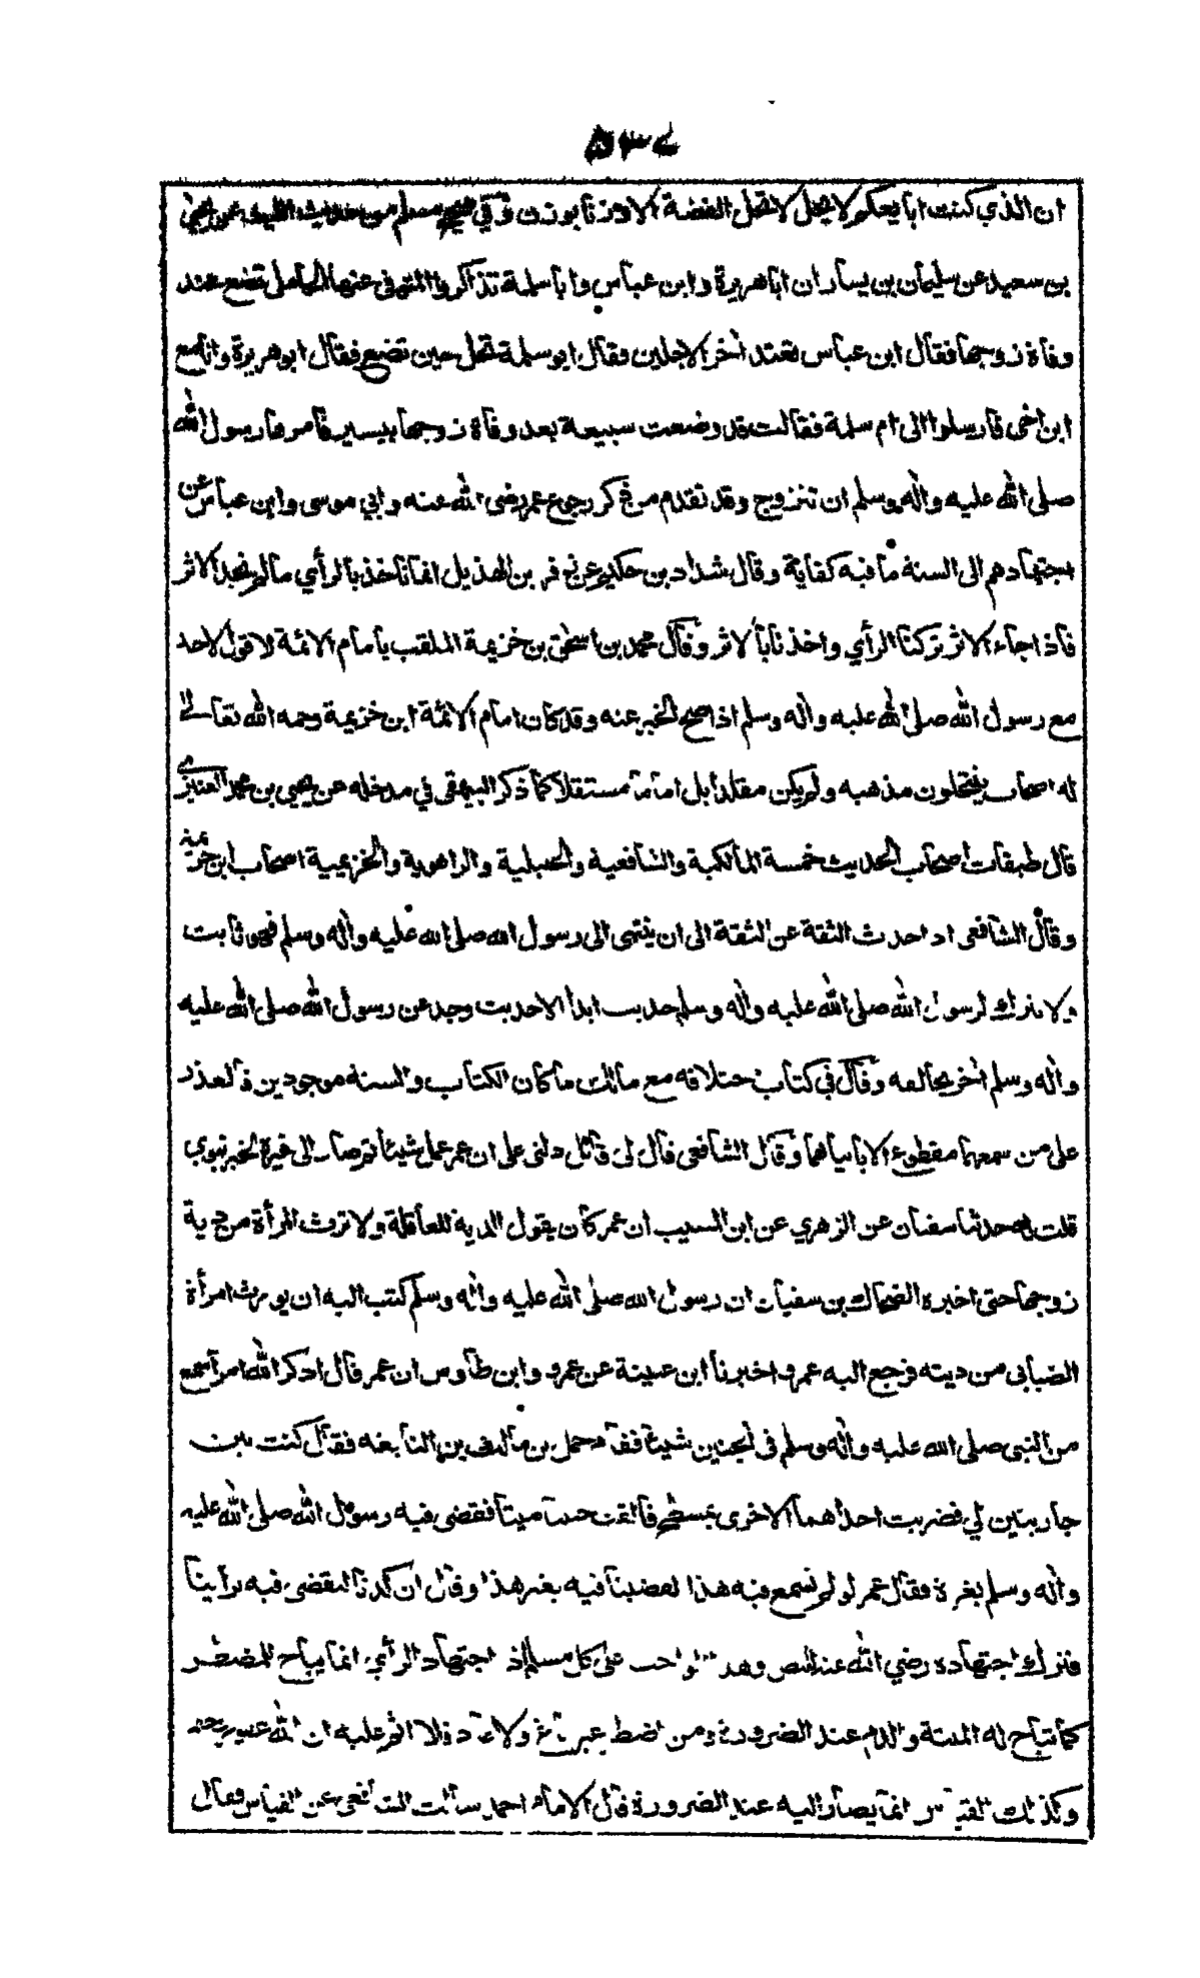 ٥٣٤
ان الذي كنت ابايعكم لا يحل لا تحل الفضة الا وزنا بوزن وفي صحيح مسلم من حديث الليث عن يحيى
بن سعيد عن سليمان بن يسار ان اباهريرة وابن عباس وابا سلمة تذاكروا المتوفى عنها الحامل تضع عند
وفاة زوجها فقال ابن عباس تعتد اخر الاجلين فقال ابو سلمة تحل حين تضع فقال ابو هريرة وانا مع
ابن اخي فارسلوا الى ام سلمة فقالت قد وضعت سبيعة بعد وفاة زوجها بيسير فامرها رسول الله
صلى الله عليه واله وسلم ان تتزوج وقد تقدم من ذكر رجوع عمر رضي الله عنه وابي موسى وابن عباس عن
اجتهادهم الى السنة ما فيه كفاية وقال شداد بن حكيم عن زفر بن الهذيل انما ناخذ بالرأي مالم نجد الاثر
فاذا جاء الاثر تركنا الرأي واخذنا بالاثر وقال محمد بن اسحق بن خزيمة الملقب بامام الائمة لا قول لاحد
مع رسول الله صلى الله عليه واله وسلم اذا صح الخبر عنه وقد كان امام الائمة ابن خزيمة رحمه الله تعالى
له اصحاب ينتحلون مذهبه ولم يكن مقلدا بل اماما مستقلا كما ذكر البيهقي في مدخله عن يحيى بن محمد العنبري
قال طبقات اصحاب الحديث خمسة المالكية والشافعية والحنبلية والراهوية والخزيمية اصحاب ابن خزيمة
وقال الشافعي اذا حدث الثقة عن الثقة الى ان ينتهي الى رسول الله صلى الله عليه واله وسلم فهو ثابت
ولا نترك لرسول الله صلى الله عليه واله وسلم حديث ابدا الا حديث وجد عن رسول الله صلى الله عليه
واله وسلم اخر يخالفه وقال في كتاب اختلافه مع مالك ما كان الكتاب والسنة موجودين فالعذر
على من سمعهما مقطوع الا باتيانهما وقال الشافعي قال لي قائل دلني على ان عمر عمل شيئا ثم صار الى غيره لخبر نبوي
قلت له حدثنا سفيان عن الزهري عن ابن المسيب ان عمر كان يقول الدية للعاقلة ولا ترث المرأة من دية
زوجها حتى اخبره الضحاك بن سفيان ان رسول الله صلى الله عليه واله وسلم كتب اليه ان يورث امرأة
الضبابي من ديته فرجع اليه عمر واخبرنا ابن عيينة عن عمرو وابن طاوس ان عمر قال اذكر الله امرأ سمع
من النبي صلى الله عليه واله وسلم في الجنين شيئا فقام حمل بن مالك بن النابغة فقال كنت بين
جاريتين لي فضربت احداهما الاخرى بمسطح فالقت جنينا ميتا فقضى فيه رسول الله صلى الله عليه
واله وسلم بغرة فقال عمر لو لم نسمع فيه هذا لقضينا فيه بغير هذا وقال ان كدنا لنقضي فيه براينا
فترك اجتهاده رضي الله عنه للنص وهذا الواجب على كل مسلم اذ اجتهاد الرأي انما يباح للمضطر
كما تباح له الميتة والدم عند الضرورة فمن اضطر غير باغ ولا عاد فلا اثم عليه ان الله غفور رحيم
وكذلك القياس انما يصار اليه عند الضرورة قال الامام احمد سألت الشافعي عن القياس فقال